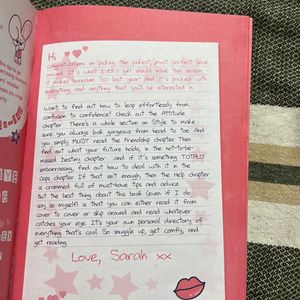 Hi,
Congratulations on picking the pinkest, most perfect book
around. It's what EVERY girl should have this season. It
makes boredom SO last year! And it's packed with
everything and anything that you'll be interested in.
Want to find out how to leap effortlessly from
confusion to confidence? Check out the Attitude
chapter. There's a whole section on Style to make
sure you always look gorgeous from head to toe. And
you simply MUST read the Friendship chapter. Then
find out what your future holds in the not-to-be-
missed Destiny chapter... and if it's something TOTALLY
embarrassing, find out how to deal with it in the
Oops chapter. If that isn't enough, then the Help chapter
is crammed full of must-have tips and advice.
But the best thing about this book (even if I do
say so myself) is that you can either read it from
cover to cover or skip around and read whatever
catches your eye. It's your own personal directory of
everything that's cool. So snuggle up, get comfy, and
get reading.
Love, Sarah xx